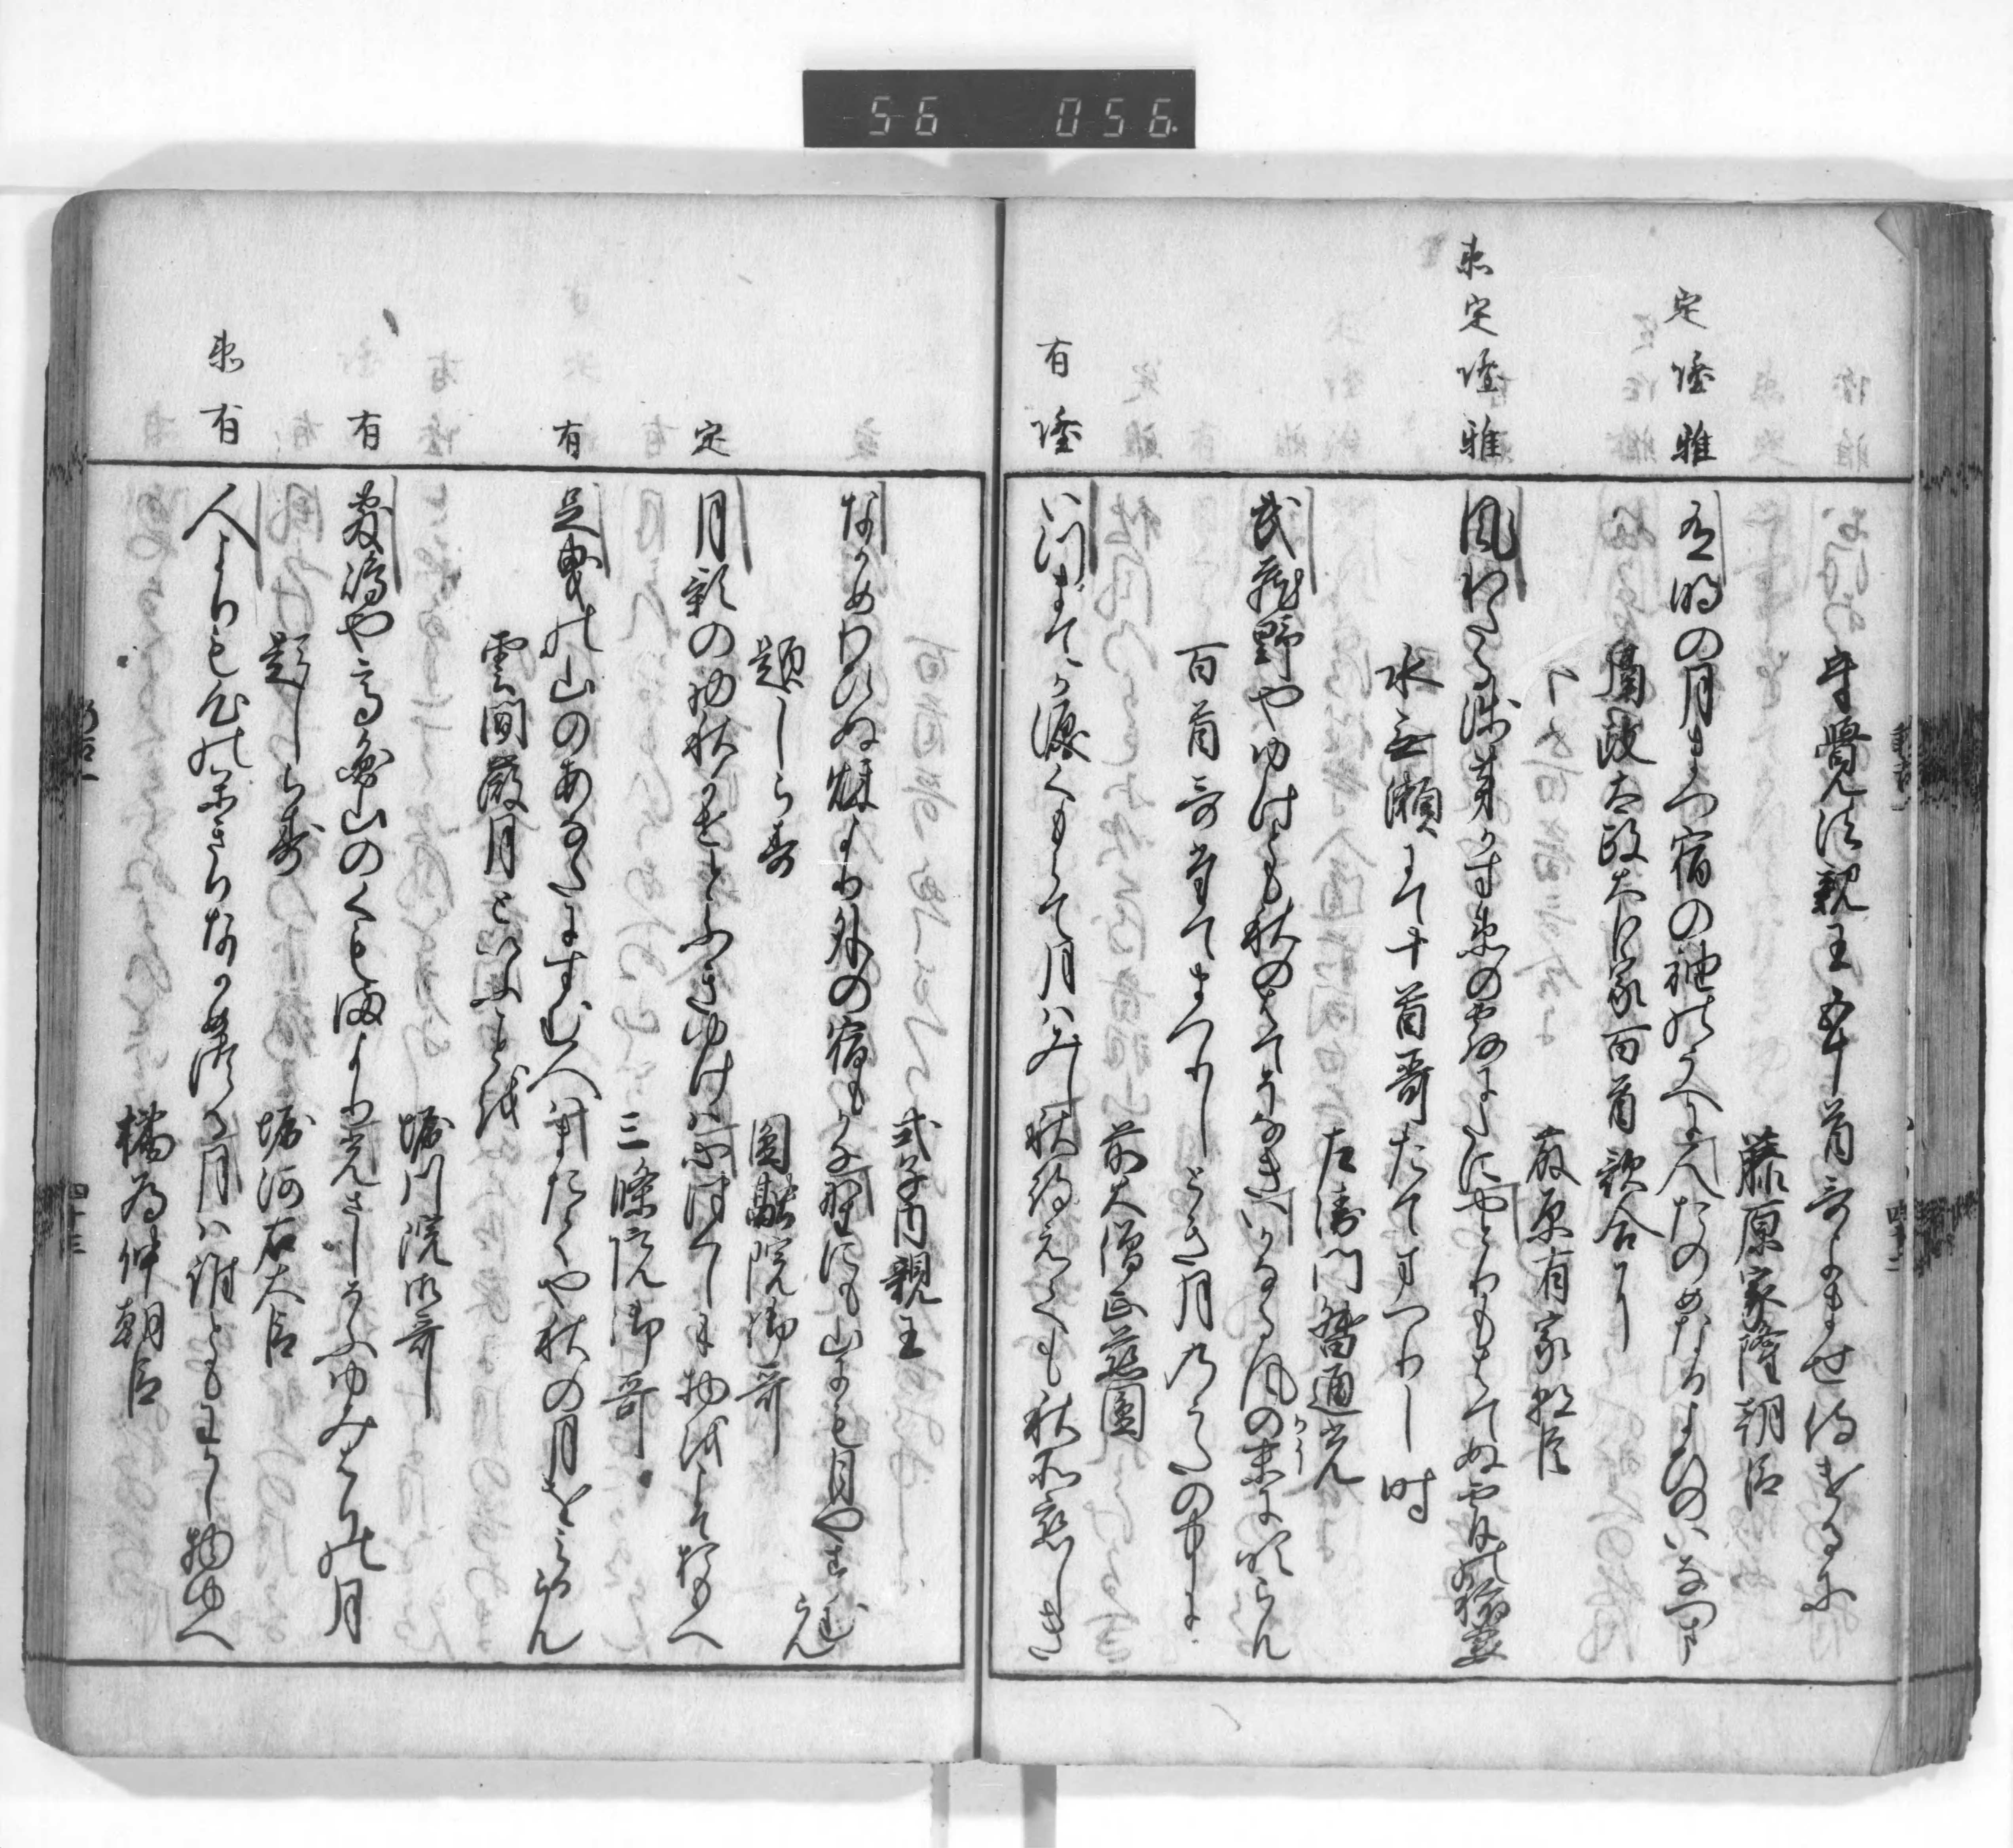 56 056
守覚法親王五十首哥よませ侍けるに
藤原家隆朝臣
定 隆 雅
有明の月まつ宿の袖のうへに人たのめなるよひのいなつま
摂政太政大臣家百首歌合に
藤原有家朝臣
定 隆 雅
風わたる浅茅かすゑの露にたにやとりもはてぬよひの稲妻
水無瀬にて十首哥たてまつりし時
左衛門督通光
武蔵野やゆけとも秋のはてそなきいかなる風の末に吹らん
百首哥奉てまつりしとき月のうたの中に
前大僧正慈圓
有 隆
いつまてか涙くもらて月はみし秋待えても秋そ恋しき
式子内親王
なかめわひぬ秋より外の宿もかな野にも山にも月やすむらん
題しらす
圓融院御哥
定
月影の初秋かせとふきゆけは心つくしに物をこそおもへ
三條院御哥
有
足曳の山のあなたにすむ人はまたてや秋の月をみるらん
雲間微月といふことを
堀川院御哥
有
敷嶋や高圓山のくもまより光さしそふゆみはりの月
題しらす
堀河右大臣
有
人よりも心のかきりなかめつる月は誰ともわかし物ゆへ
橘為仲朝臣
四十三